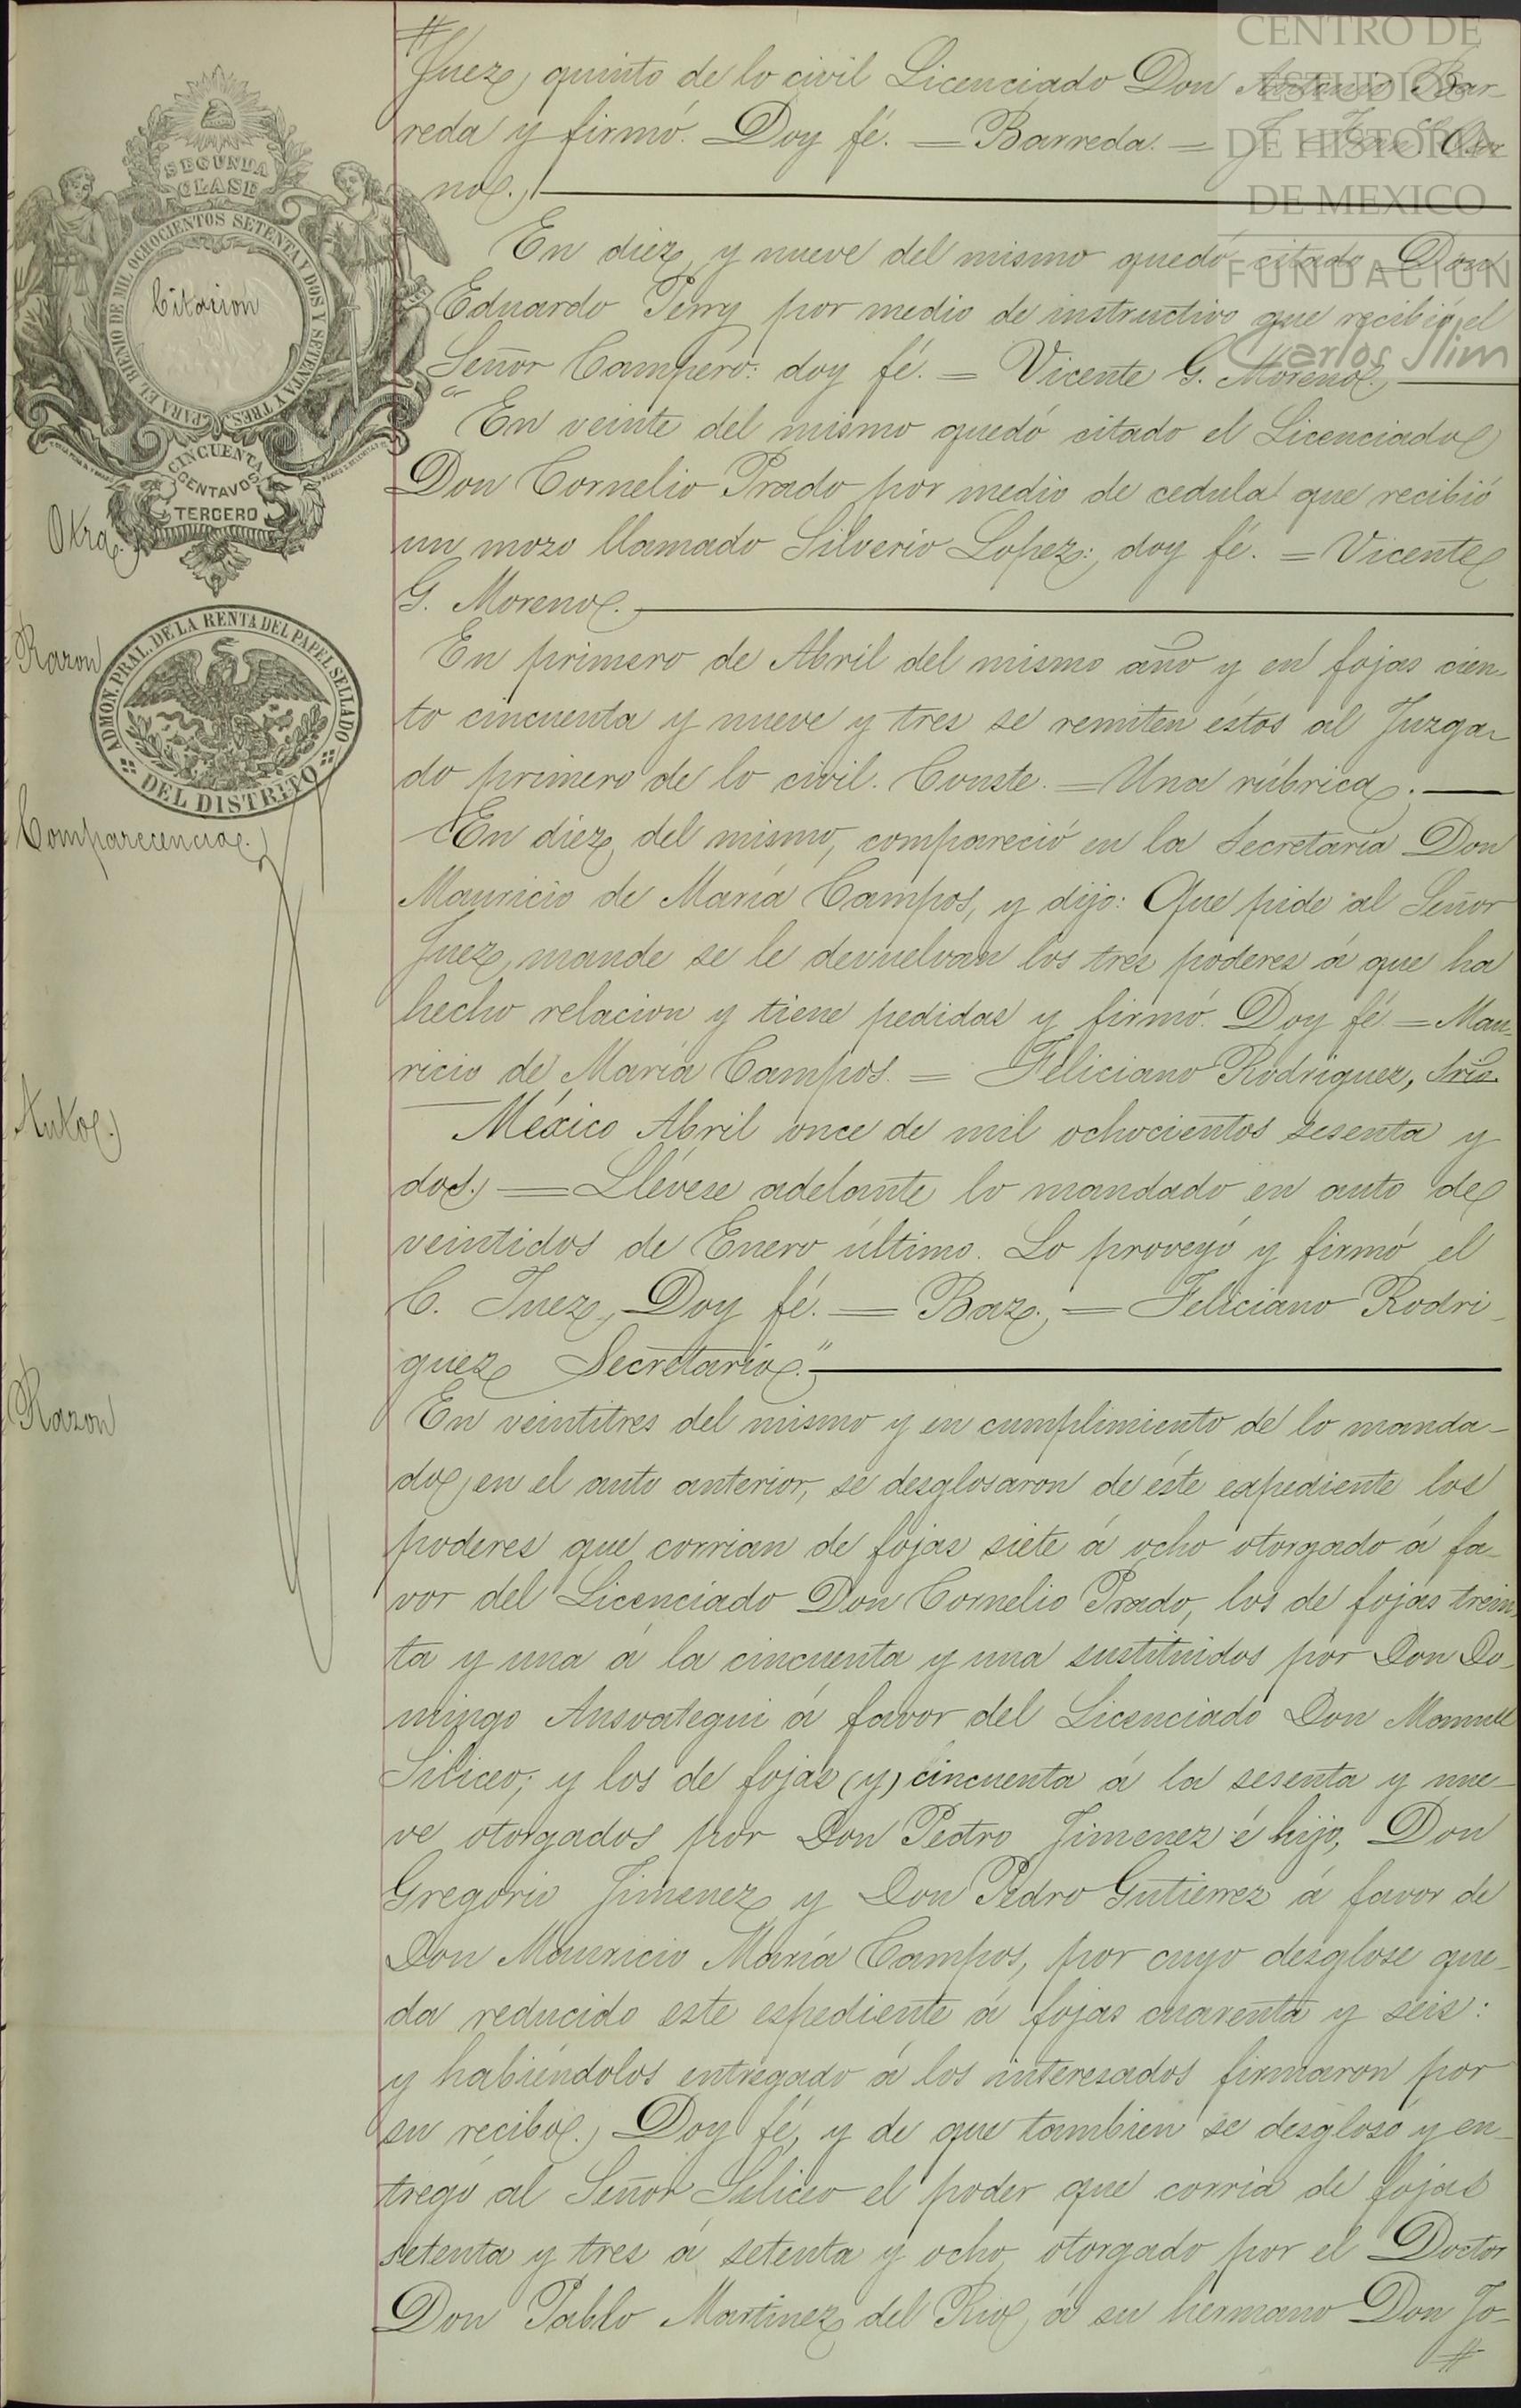 CENTRO DE
ESTUDIOS
DE HISTORIA
DE MEXICO
FUNDACIÓN
Carlos Slim
SEGUNDA
CLASE
PARA EL BIENIO DE MIL OCHOCIENTOS SETENTA Y DOS Y SETENTA Y TRES.
Citacion
CINCUENTA
CENTAVOS
TERCERO
Otra.
Razon
ADMON. PRAL. DE LA RENTA DEL PAPEL SELLADO
DEL DISTRITO
Comparecencia.
Auto.
Razon
Juez, quinto de lo civil Licenciado Don Antonio Bar-
reda y firmó. Doy fé. = Barreda. =
no.
En diez y nueve del mismo quedó citado Don
Eduardo Perry por medio de instructivo que recibió el
Señor Campero: doy fé. = Vicente G. Moreno.
"En veinte del mismo quedó citado el Licenciado
Don Cornelio Prado por medio de cedula que recibió
un mozo llamado Silverio Lopez: doy fé. = Vicente
G. Moreno.
En primero de Abril del mismo año y en fojas cien-
to cincuenta y nueve y tres se remiten éstos al Juzga-
do primero de lo civil. Conste. = Una rúbrica.
En diez, del mismo, compareció en la Secretaría Don
Mauricio de María Campos, y dijo: Que pide al Señor
Juez, mande se le devuelvan los tres poderes á que ha
hecho relacion y tiene pedidas y firmó. Doy fé = Mau-
ricio de María Campos. = Feliciano Rodriguez, Srio.
México Abril once de mil ochocientos sesenta y
dos. = Llévese adelante lo mandado en auto de
veintidos de Enero último. Lo proveyó y firmó el
C. Juez, Doy fé. = Baz. = Feliciano Rodri-
guez Secretario."
En veintitres del mismo y en cumplimiento de lo manda-
do, en el auto anterior, se desglosaron de éste expediente los
poderes que corrian de fojas siete á ocho otorgado á fa-
vor del Licenciado Don Cornelio Prado, los de fojas trein-
ta y una á la cincuenta y una sustituidos por Don Do-
mingo Ansoategui á favor del Licenciado Don Manuel
Siliceo; y los de fojas (y) cincuenta á la sesenta y nue-
ve otorgados por Don Pedro Jimenez é hijo, Don
Gregorio Jimenez y Don Pedro Gutierrez á favor de
Don Mauricio María Campos, por cuyo desglose que-
da reducido este espediente á fojas cuarenta y seis:
y habiéndolos entregado á los interesados firmaron por
su recibo. Doy fé, y de que tambien se desglosó y en-
tregó al Señor Siliceo el poder que corria de fojas
setenta y tres á setenta y ocho, otorgado por el Doctor
Don Pablo Martinez del Rio, á su hermano Don Jo-